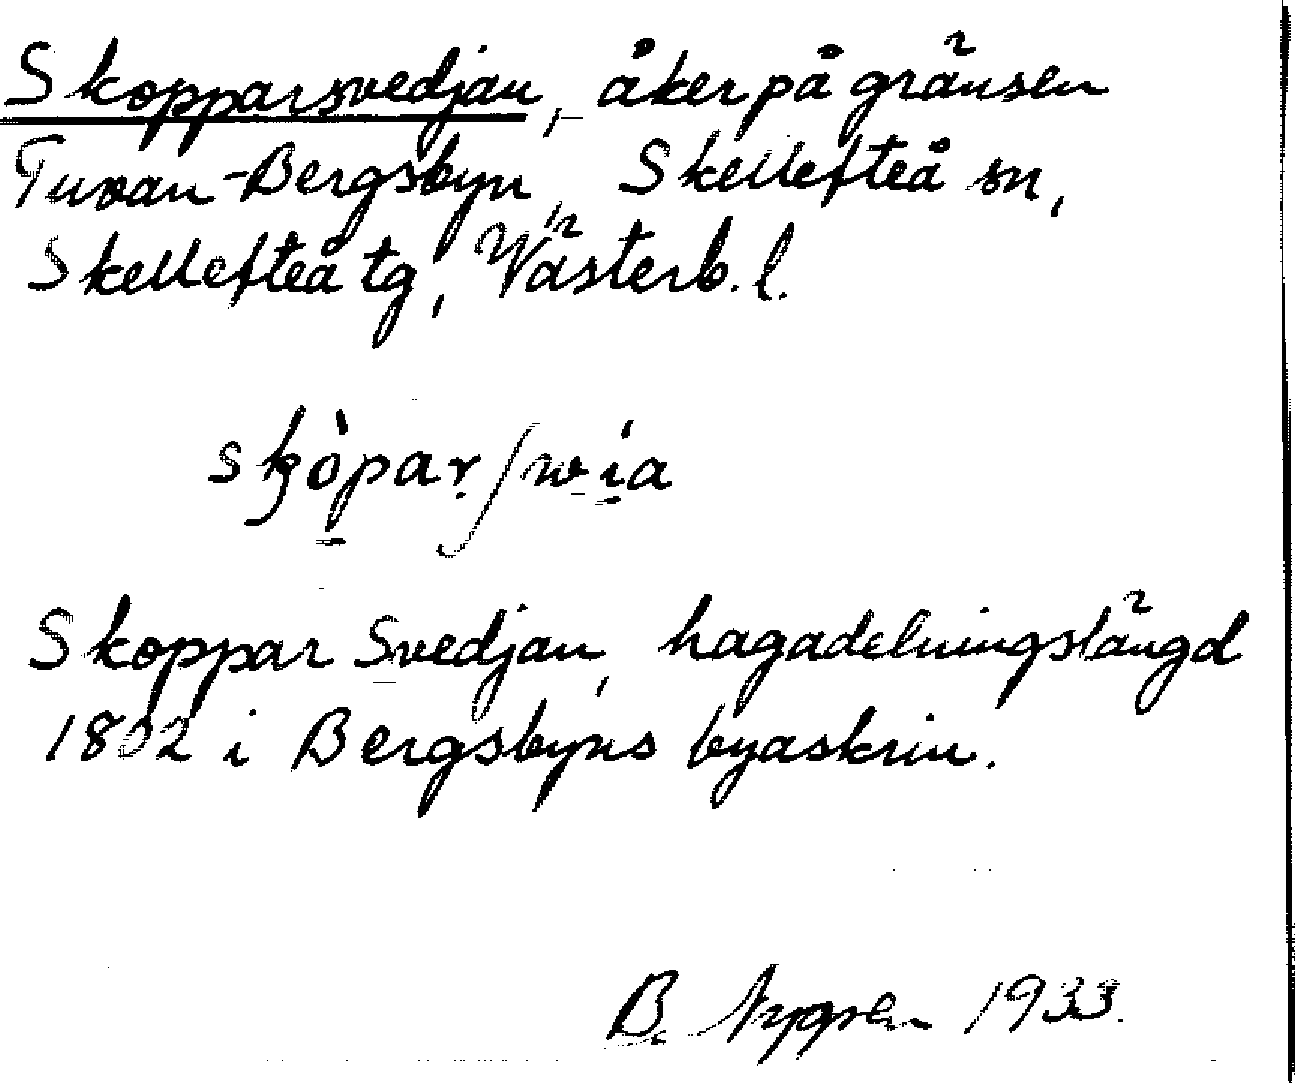 Skopparsvedjan, åker på gränsen
Tuvan-Bergsbyn, Skellefteå sn,
Skellefteå tg, Västerb. l.
skòpar/wía
Skoppar Svedjan, hagadelningslängd
1802 i Bergsbyns byaskrin.
B. Nygren 1933.